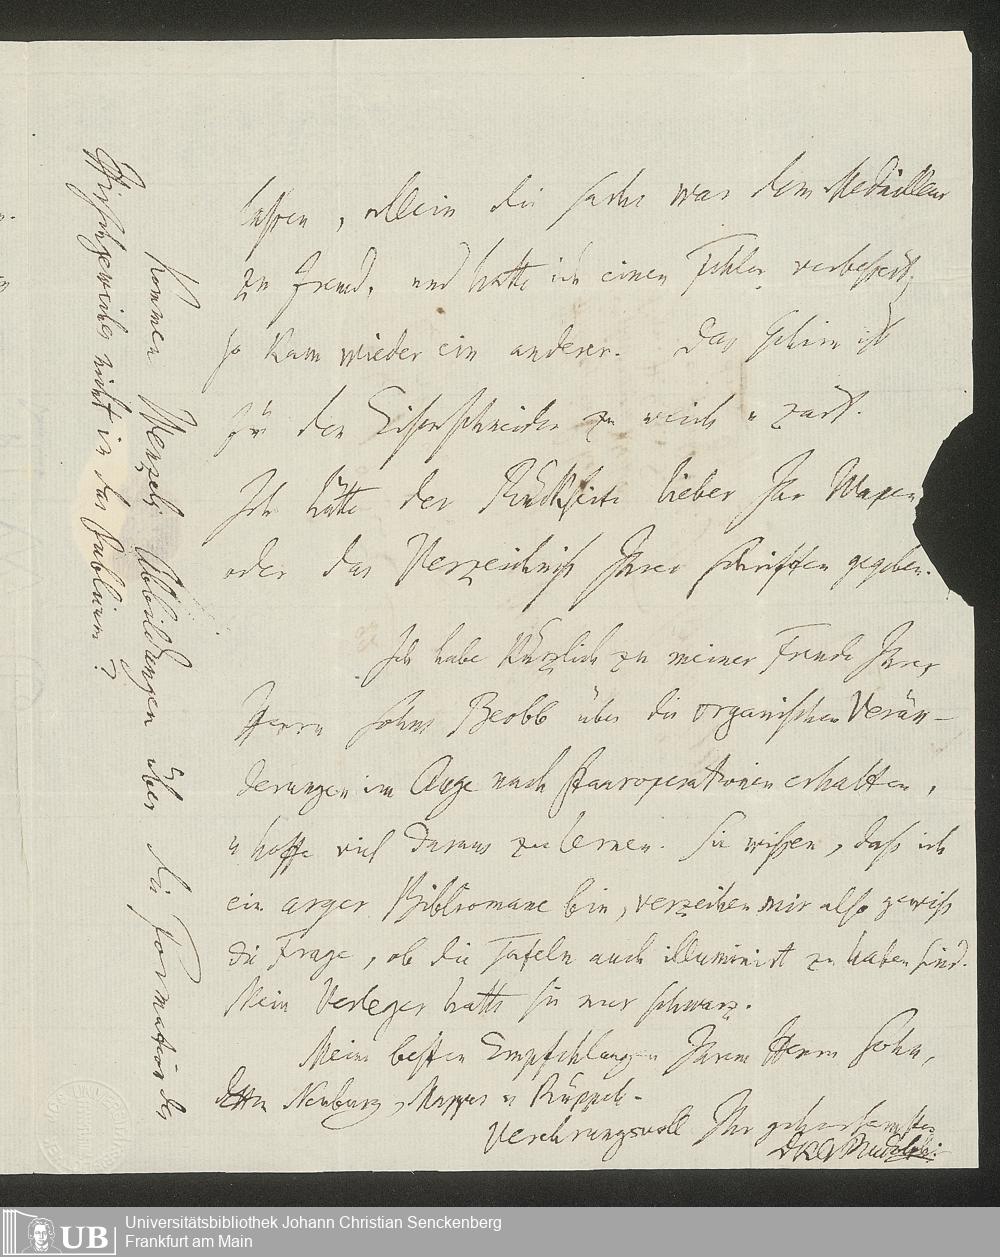 lassen, allein die Sache war dem Medailleur
zu fremd, und hatte ich einen Fehler verbessert,
so kam wieder ein anderer. Das Gehirn ist
für den Eisenschneider zu weich u zart.
Ich hätte der Rückseite lieber Ihr Wapen
oder das Verzeichniß Ihrer Schriften gegeben.
Ich habe kürzlich zu meiner Freude Ihres
Herrn Sohns Beobb über die organischen Verän-
derungen im Auge nach Staaroperationen erhalten,
u hoffe viel daraus zu lernen. Sie wissen, daß ich
ein arger Bibliomane bin, verzeihen mir also gewiß
die Frage, ob die Tafeln auch illuminirt zu haben sind.
Mein Verleger hatte sie nur schwarz.
Meine besten Empfehlungen Ihrem Herrn Sohn,
Neuburg, u Rüppell.
Verehrungsvoll Ihr gehorsamster
D K A Rudolphi.
Kommen Wenzels Abbildungen über die Formation des
Hirschgeweihes nicht in das Publicum?
Universitätsbibliothek Johann Christian Senckenberg
Frankfurt am Main
UB